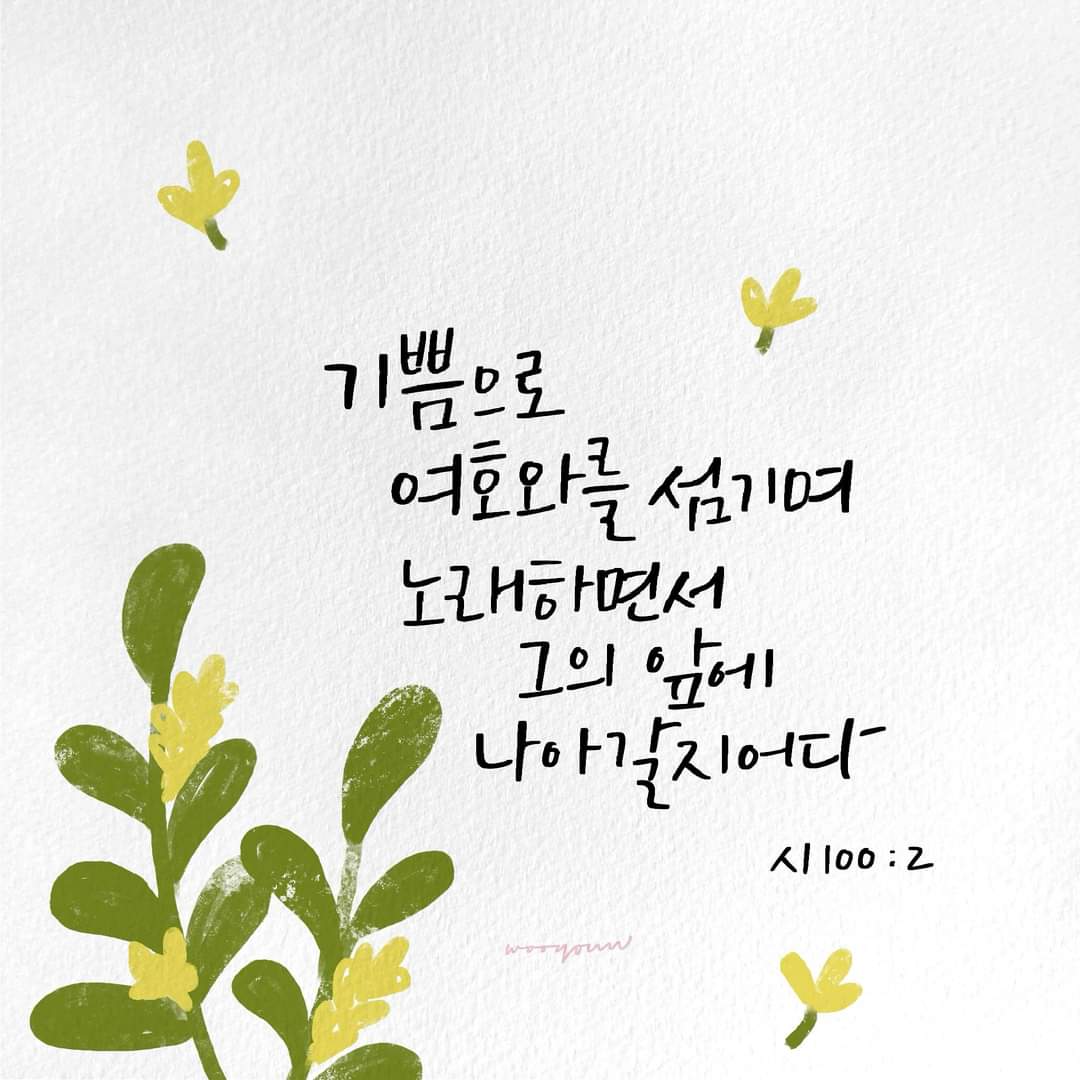 기쁨으로
여호와를 섬기며
노래하면서
그의 앞에
나아갈지어다
시 100 : 2
wooyoun